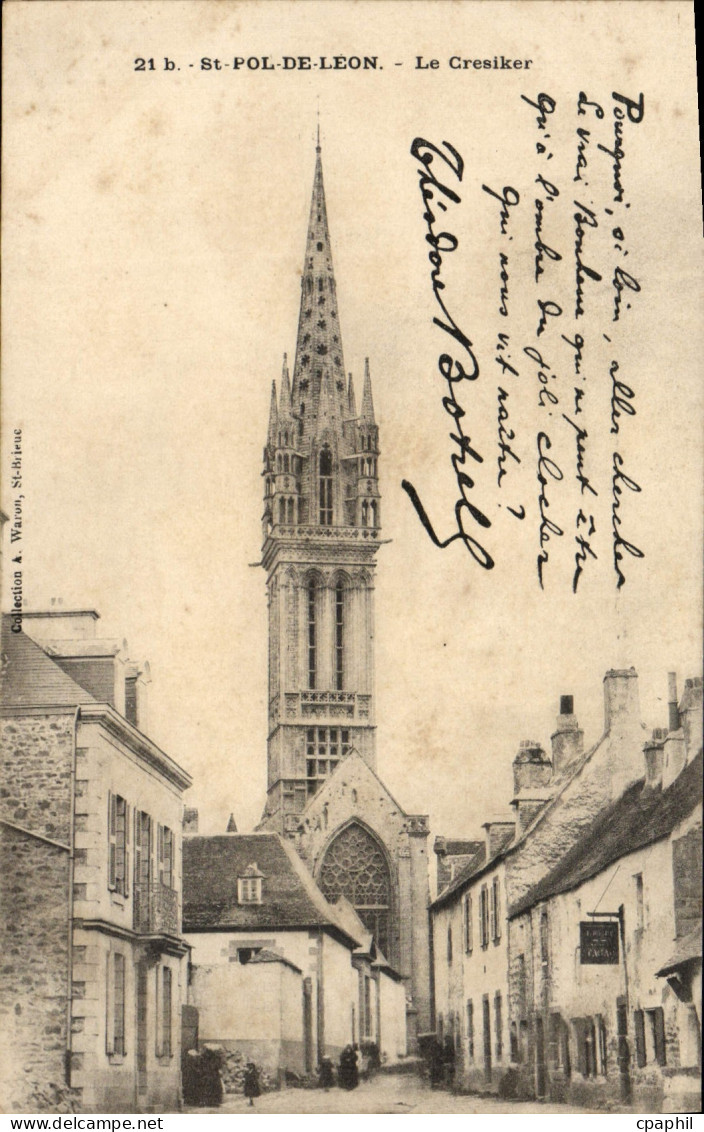 21 b. - St-POL-DE-LÉON. - Le Cresiker
Pourquoi, si loin, aller chercher
Le vrai Bonheur qui ne peut être
Qu'à l'ombre du joli clocher
Qui nous vit naître ?
Théodore Botrel
Collection A. Waron, St-Brieuc
cpaphil